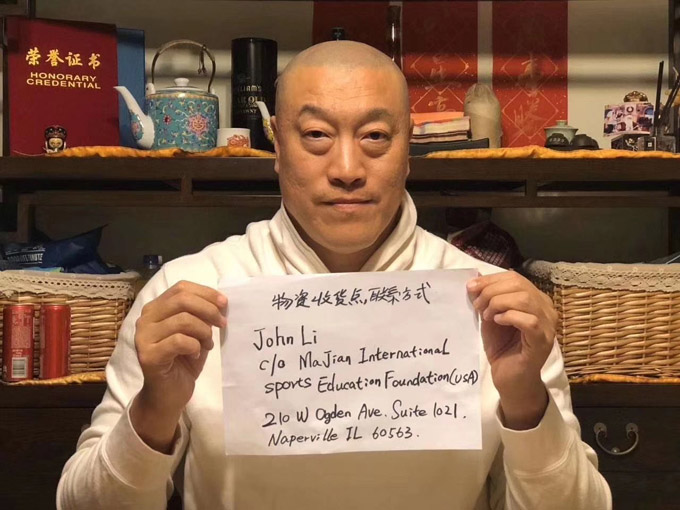 荣誉证书
HONORARY
CREDENTIAL
物资收货点,联系方式
John Li
c/o MaJian International
sports Education Foundation(USA)
210 W Ogden Ave. Suite 1021.
Naperville IL 60563.